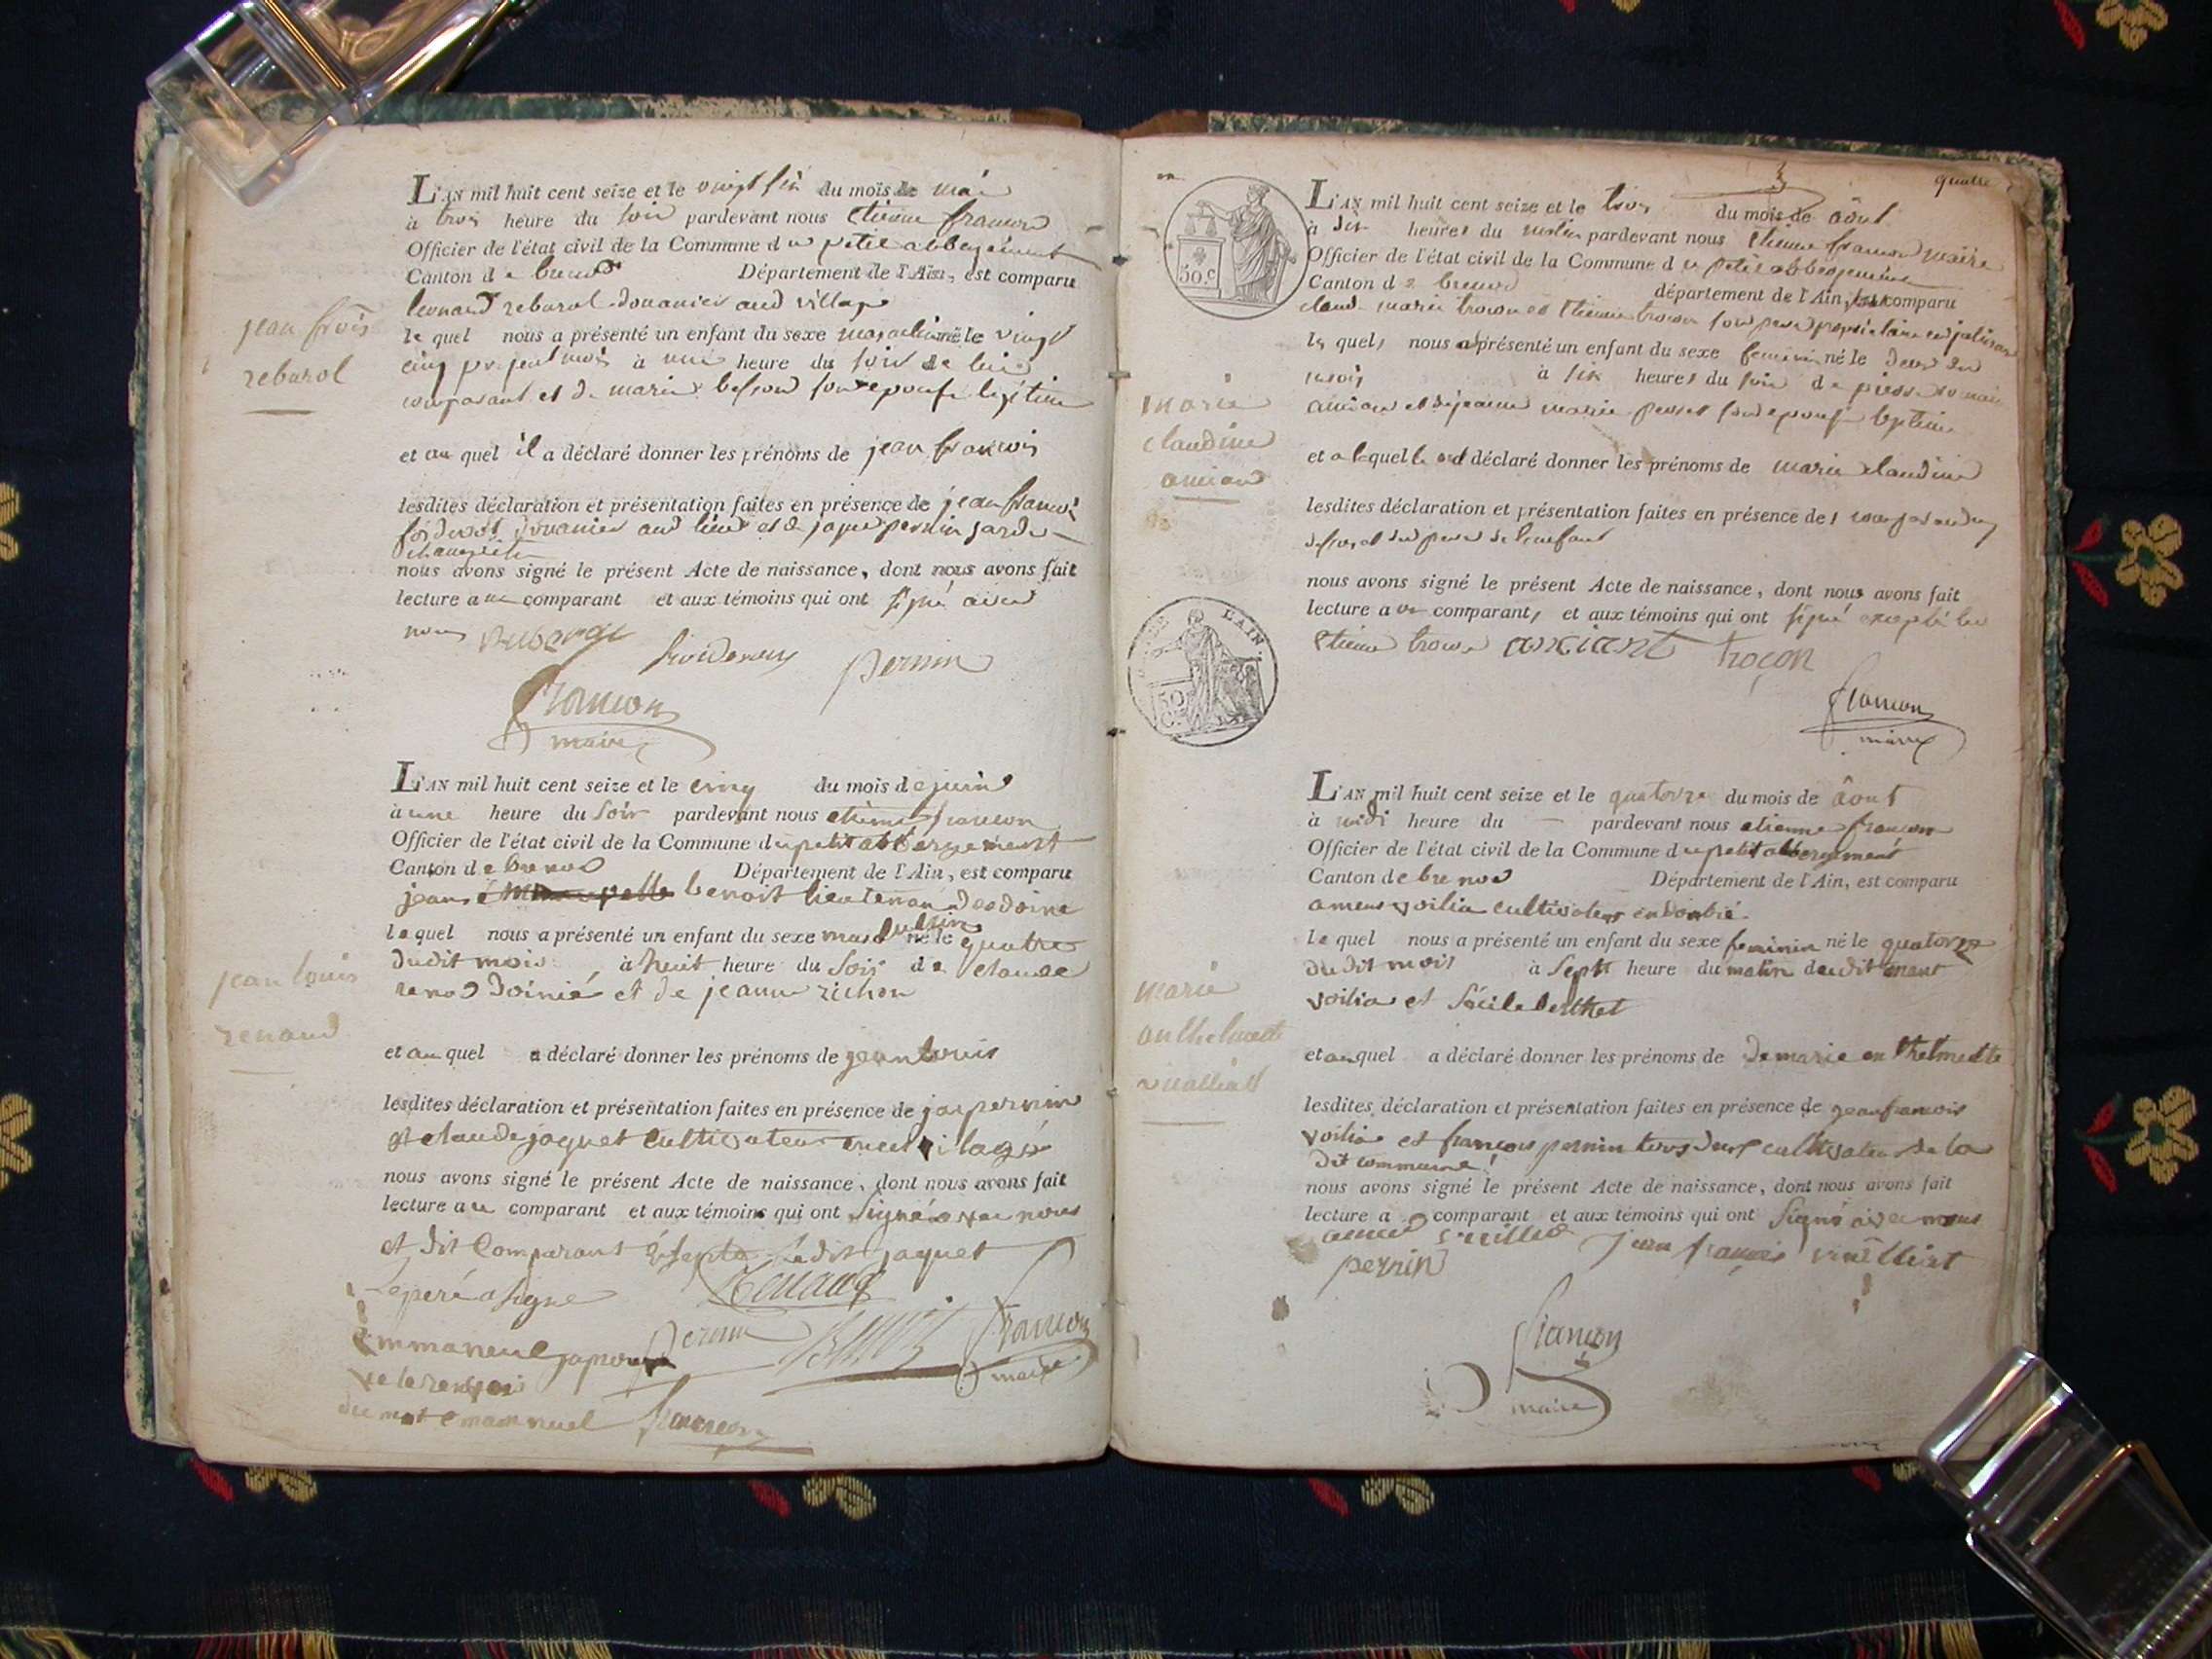 L'AN mil huit cent seize et le vingt six du mois de mai
à trois heure du soir pardevant nous etienne francon
Officier de l'état civil de la Commune du petit abbergement
Canton de brenod Département de l'Ain, est comparu
leonard douanier aud village
le quel nous a présenté un enfant du sexe masculin né le vingt
cinq present mois à une heure du soir de lui
comparant et de marie son epouse legitime
jean frois
rebarol
et au quel il a déclaré donner les prénoms de jean francois
lesdites déclaration et présentation faites en présence de jean francois
douanier aud lieu et de jaque pernin garde
champetre
nous avons signé le présent Acte de naissance, dont nous avons fait
lecture au comparant et aux témoins qui ont signé avec
nous
pernin
francon
maire
L'AN mil huit cent seize et le cinq du mois de juin
à une heure du soir pardevant nous etienne francon
Officier de l'état civil de la Commune du petit abbergement
Canton de brenod Département de l'Ain, est comparu
jean benoit lieutenan des doine
le quel nous a présenté un enfant du sexe masculin né le quatre
dudit mois à huit heure du soir de claude
renod doinié et de jeanne richon
jean louis
renaud
et au quel a déclaré donner les prénoms de jean louis
lesdites déclaration et présentation faites en présence de jaq pernin
et claude jaquet cultivateur
nous avons signé le présent Acte de naissance, dont nous avons fait
lecture au comparant et aux témoins qui ont signé avec nous
et dit comparant Esepte ledit jaquet
Le pere a signe Renaud
emmaneul japrouve pernin francon
maire
du mot emannuel francon
quatre
50.c
L'AN mil huit cent seize et le trois du mois de âout
à dix heures du matin pardevant nous etienne francon maire
Officier de l'état civil de la Commune du petit abbergement
Canton de brenod département de l'Ain, comparu
claud marie et etienne son pere propriétaire
les quels nous ont présenté un enfant du sexe feminin né le deux du
mois à six heures du soir de pierre
anciant et de jeanne marie son epouse legitime
marie
claudine
anciant
et a laquelle ont déclaré donner les prénoms de marie claudine
lesdites déclaration et présentation faites en présence des comparans
et du pere de l'enfant
nous avons signé le présent Acte de naissance, dont nous avons fait
lecture aux comparants et aux témoins qui ont signé excepté led
etienne anxiant troçon
francon
maire
AIN
50
C.
L'AN mil huit cent seize et le quatorze du mois de âout
à midi heure du — pardevant nous etienne francon
Officier de l'état civil de la Commune du petit abbergement
Canton de brenod Département de l'Ain, est comparu
voilia cultivateur
le quel nous a présenté un enfant du sexe feminin né le quatorze
du dit mois à sept heure du matin dudit
voilia et Sécile berthet
marie
anthelmette
et au quel a déclaré donner les prénoms de marie enthelmette
lesdites déclaration et présentation faites en présence de jean francois
voilia et francois pernin tous deux cultivateur de la
dit commune
nous avons signé le présent Acte de naissance, dont nous avons fait
lecture a comparant et aux témoins qui ont signé avec nous
pernin jean francois
francon
maire